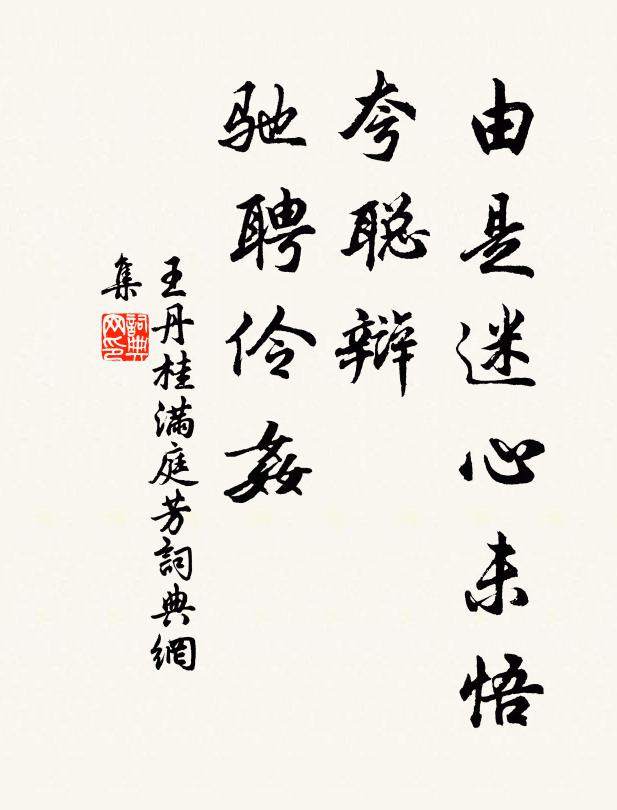 由是迷心未悟
夸聪辩
驰聘伶姦
王丹桂满庭芳詞典網
集
詞典网印